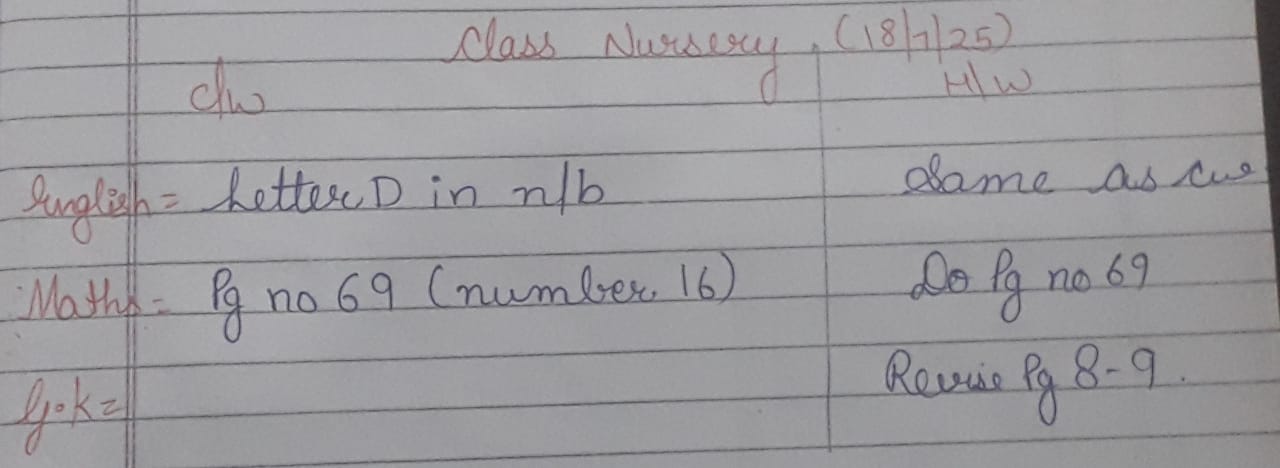 Class Nursery, (18/7/25)
C/W H/W
English = Letter D in n/b Same as cw
Maths = Pg no 69 (number 16) Do Pg no 69
G.k = Revise Pg 8-9.